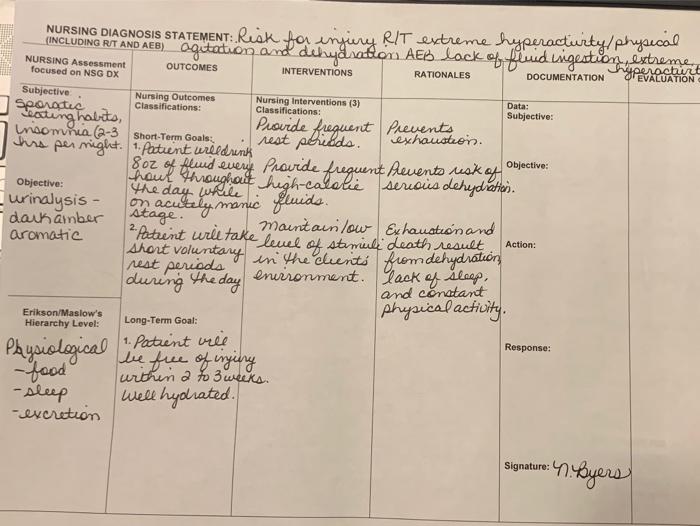 NURSING DIAGNOSIS STATEMENT: Risk for injury R/T extreme hyperactivity/physical
(INCLUDING R/T AND AEB) agitation and dehydration AEB lack of fluid ingestion, extreme
hyperactivit
NURSING Assessment
focused on NSG DX
OUTCOMES
INTERVENTIONS
RATIONALES
DOCUMENTATION
EVALUATION
Subjective:
Sporatic
eating habits,
insomnia (2-3
hrs per night.
Objective:
urinalysis -
dark amber
aromatic
Erikson/Maslow's
Hierarchy Level:
Physiological
-food
-sleep
-excretion
Nursing Outcomes
Classifications:
Short-Term Goals:
1. Patient will drink
8oz of fluid every
hour throughout
the day while
on acutely manic
stage.
2. Patient will take
short voluntary
rest periods
during the day
Long-Term Goal:
1. Patient will
be free of injury
within 2 to 3 weeks.
Well hydrated.
Nursing Interventions (3)
Classifications:
Provide frequent
rest periods.
Provide frequent
high-calorie
fluids.
Maintain low
level of stimuli
in the clients
environment.
Prevents
exhaustion.
Prevents risk of
serious dehydration.
Exhaustion and
death result
from dehydration,
lack of sleep,
and constant
physical activity.
Data:
Subjective:
Objective:
Action:
Response:
Signature: N. Byers